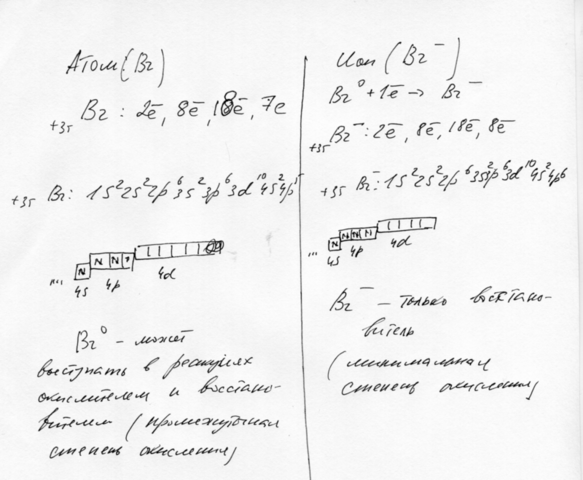 Атом (Br)
+35 Br : 2ē, 8ē, 18ē, 7e
+35 Br: 1s² 2s² 2p⁶ 3s² 3p⁶ 3d¹⁰ 4s² 4p⁵
... 4s 4p 4d
Br⁰ - может
выступать в реакциях
окислителем и восстано-
вителем (промежуточная
степень окисления)
Ион (Br⁻)
Br⁰ + 1ē → Br⁻
+35 Br⁻ : 2ē, 8ē, 18ē, 8ē
+35 Br⁻: 1s² 2s² 2p⁶ 3s² 3p⁶ 3d¹⁰ 4s² 4p⁶
... 4s 4p 4d
Br⁻ - только восстано-
витель
(минимальная
степень окисления)